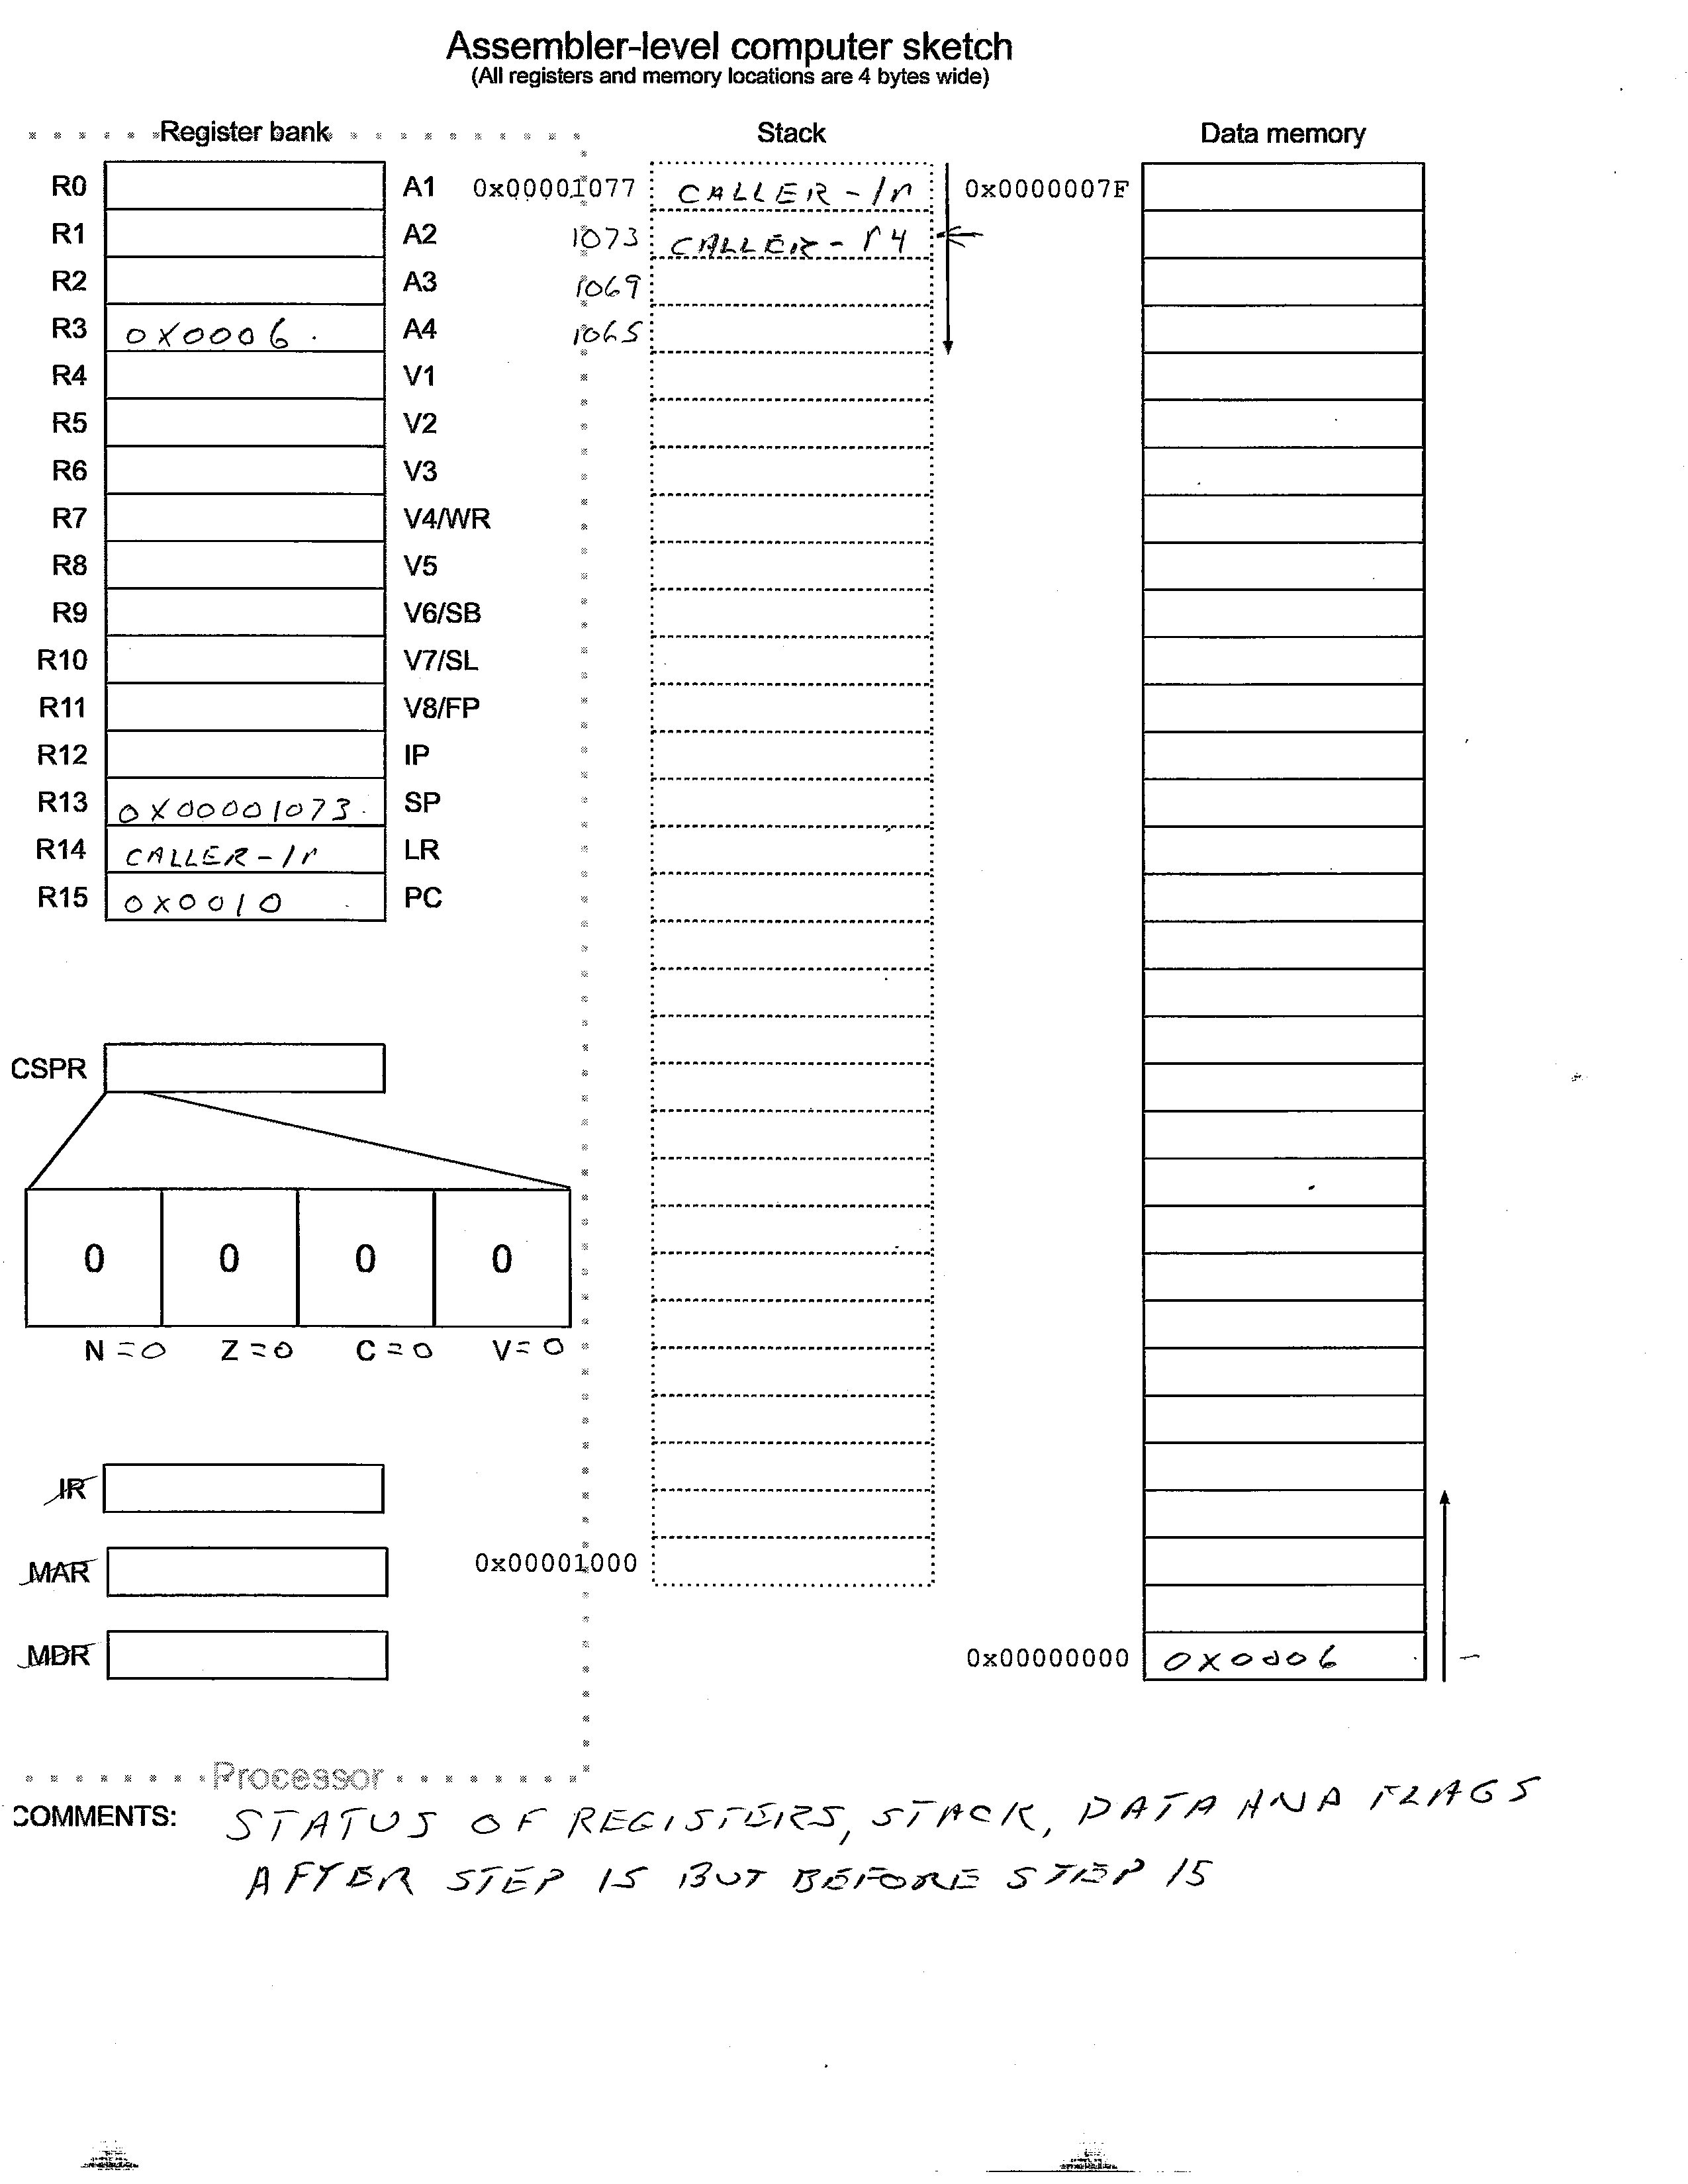 Assembler-level computer sketch
(All registers and memory locations are 4 bytes wide)
Register bank
R0 A1
R1 A2
R2 A3
R3 0X0006 A4
R4 V1
R5 V2
R6 V3
R7 V4/WR
R8 V5
R9 V6/SB
R10 V7/SL
R11 V8/FP
R12 IP
R13 0X00001073 SP
R14 CALLER-lr LR
R15 0X0010 PC
CSPR
0 0 0 0
N=0 Z=0 C=0 V=0
IR
MAR
MDR
Processor
Stack
0x00001077 CALLER-lr
1073 CALLER-r4
1069
1065
0x00001000
Data memory
0x0000007F
0x00000000 0X0006
COMMENTS: STATUS OF REGISTERS, STACK, DATA AND FLAGS
AFTER STEP 15 BUT BEFORE STEP 15